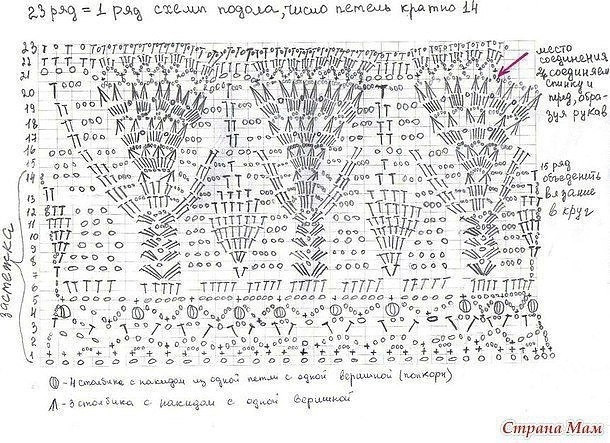 23 ряд = 1 ряд схемы подола, число петель кратно 14
место
соединения
соединяем
спинку и
перед, обра-
зуя рукав
15 ряд
объеденить
вязание
в круг
застежка
23
22
21
20
19
18
17
16
15
14
13
12
11
10
9
8
7
6
5
4
3
2
1
- 4 столбика с накидом из одной петли с одной вершиной (попкорн)
- 3 столбика с накидом с одной вершиной
Страна Мам